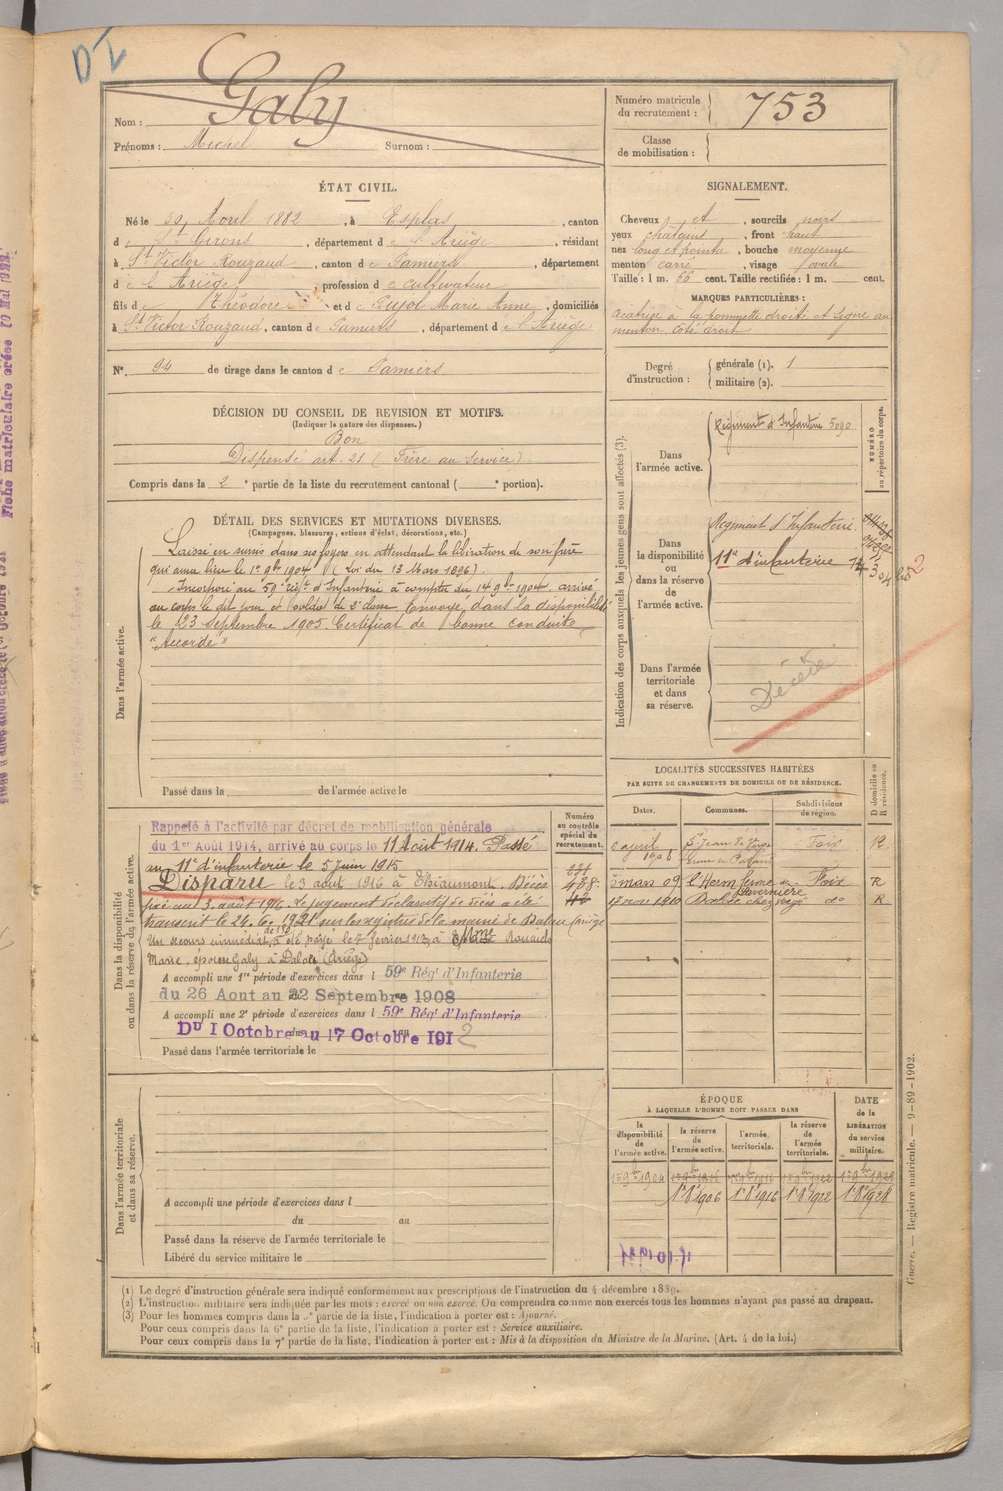 DI
Nom : Galy
Prénoms : Michel Surnom :
Numéro matricule du recrutement : 753
Classe de mobilisation :
ÉTAT CIVIL.
Né le 30 Avril 1882, à Esplas, canton
d e St Girons, département d e l'Ariège, résidant
à St Victor Rouzaud, canton d e Pamiers, département
d e l'Ariège, profession d e cultivateur
fils d e Théodore et d e Pujol Marie Anne, domiciliés
à St Victor Rouzaud, canton d e Pamiers, département d e l'Ariège
N° 94 de tirage dans le canton d e Pamiers
SIGNALEMENT.
Cheveux et, sourcils noirs
yeux chatains, front haut
nez long et pointu, bouche moyenne
menton carré, visage ovale
Taille : 1 m. 66 cent. Taille rectifiée : 1 m. cent.
MARQUES PARTICULIÈRES :
cicatrice à la pommette droite et signe au
menton côté droit
Degré d'instruction : générale (1). 1
militaire (2).
DÉCISION DU CONSEIL DE REVISION ET MOTIFS.
(Indiquer la nature des dispenses.)
Bon
Dispensé art. 21 (Frère au service)
Compris dans la 2e partie de la liste du recrutement cantonal ( e portion).
DÉTAIL DES SERVICES ET MUTATIONS DIVERSES.
(Campagnes, blessures, actions d'éclat, décorations, etc.)
Dans l'armée active.
Laissé en sursis dans ses foyers en attendant la libération de son frère
qui aura lieu le 1er 9bre 1904 (Loi du 13 Mars 1896).
Incorporé au 59e régt d'Infanterie à compter du 14 9bre 1904. arrivé
au corps le dit jour et soldat de 2e classe. Envoyé dans la disponibilité
le 23 Septembre 1905. Certificat de bonne conduite
"Accordé"
Passé dans la de l'armée active le
Indication des corps auxquels les jeunes gens sont affectés (3).
NUMÉRO au répertoire du corps.
Dans l'armée active.
Régiment d'Infanterie 5090
Dans la disponibilité ou dans la réserve de l'armée active.
Régiment d'Infanterie
11e d'infanterie
Dans l'armée territoriale et dans sa réserve.
Décédé
LOCALITÉS SUCCESSIVES HABITÉES
PAR SUITE DE CHANGEMENTS DE DOMICILE OU DE RÉSIDENCE.
Dates. Communes. Subdivisions de région. D domicile ou R résidence.
6 avril 1908 St Jean de Verges Foix R.
5 mars 09 l'Herm ferme Foix R
17 nov 1910 do R
Dans la disponibilité ou dans la réserve de l'armée active.
Numéro au contrôle spécial du recrutement.
Rappelé à l'activité par décret de mobilisation générale
du 1er Août 1914, arrivé au corps le 11 Août 1914. Passé
au 11e d'infanterie le 5 Juin 1915
Disparu le 3 août 1916 à Thiaumont. Décès
fixé au 3 août 1916. Le jugement déclaratif de décès a été
transcrit le 24. 6. 1921 sur les registres de la mairie de Dalou (Ariège
Un secours immédiat de 150 f a été payé le 7 février 1917, à Mme Rouaix
Marie, épouse Galy à Dalou (Ariège)
A accompli une 1re période d'exercices dans l 59e Régt d'Infanterie
du 26 Aout au 22 Septembre 1908
A accompli une 2e période d'exercices dans l 59e Régt d'Infanterie
Du 1 Octobre au 17 Octobre 1912
Passé dans l'armée territoriale le
ÉPOQUE
À LAQUELLE L'HOMME DOIT PASSER DANS
la disponibilité de l'armée active. la réserve de l'armée active. l'armée territoriale. la réserve de l'armée territoriale. DATE de la LIBÉRATION du service militaire.
1er 9bre 1904 1er 9bre 1906 1er 9bre 1916 1er 9bre 1922 1er 9bre 1928
1er 8 1906 1er 8 1916 1er 8 1922 1er 8 1928
Dans l'armée territoriale et dans sa réserve.
A accompli une période d'exercices dans l
du au
Passé dans la réserve de l'armée territoriale le
Libéré du service militaire le
(1) Le degré d'instruction générale sera indiqué conformément aux prescriptions de l'instruction du 4 décembre 1889.
(2) L'instruction militaire sera indiquée par les mots : exercé ou non exercé. On comprendra comme non exercés tous les hommes n'ayant pas passé au drapeau.
(3) Pour les hommes compris dans la 5e partie de la liste, l'indication à porter est : Ajourné.
Pour ceux compris dans la 6e partie de la liste, l'indication à porter est : Service auxiliaire.
Pour ceux compris dans la 7e partie de la liste, l'indication à porter est : Mis à la disposition du Ministre de la Marine. (Art. 4 de la loi.)
Guerre. — Registre matricule. — 9-89-1902.